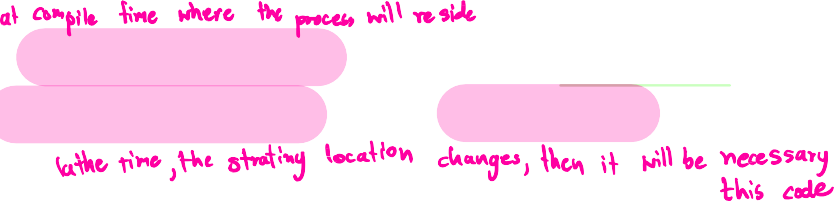 at compile time where the process will reside
lathe time, the strating location changes, then it will be necessary
this code